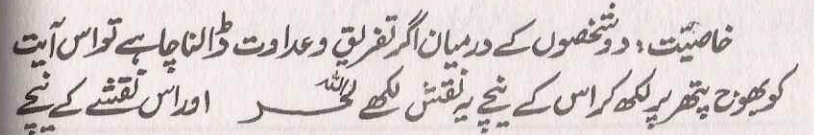 خاصیّت : دو شخصوں کے درمیان اگر تفریق و عداوت ڈالنا چاہے تو اس آیت
کو بھوج پتھر پر لکھ کر اس کے نیچے یہ نقش لکھے اور اس نقشے کے نیچے